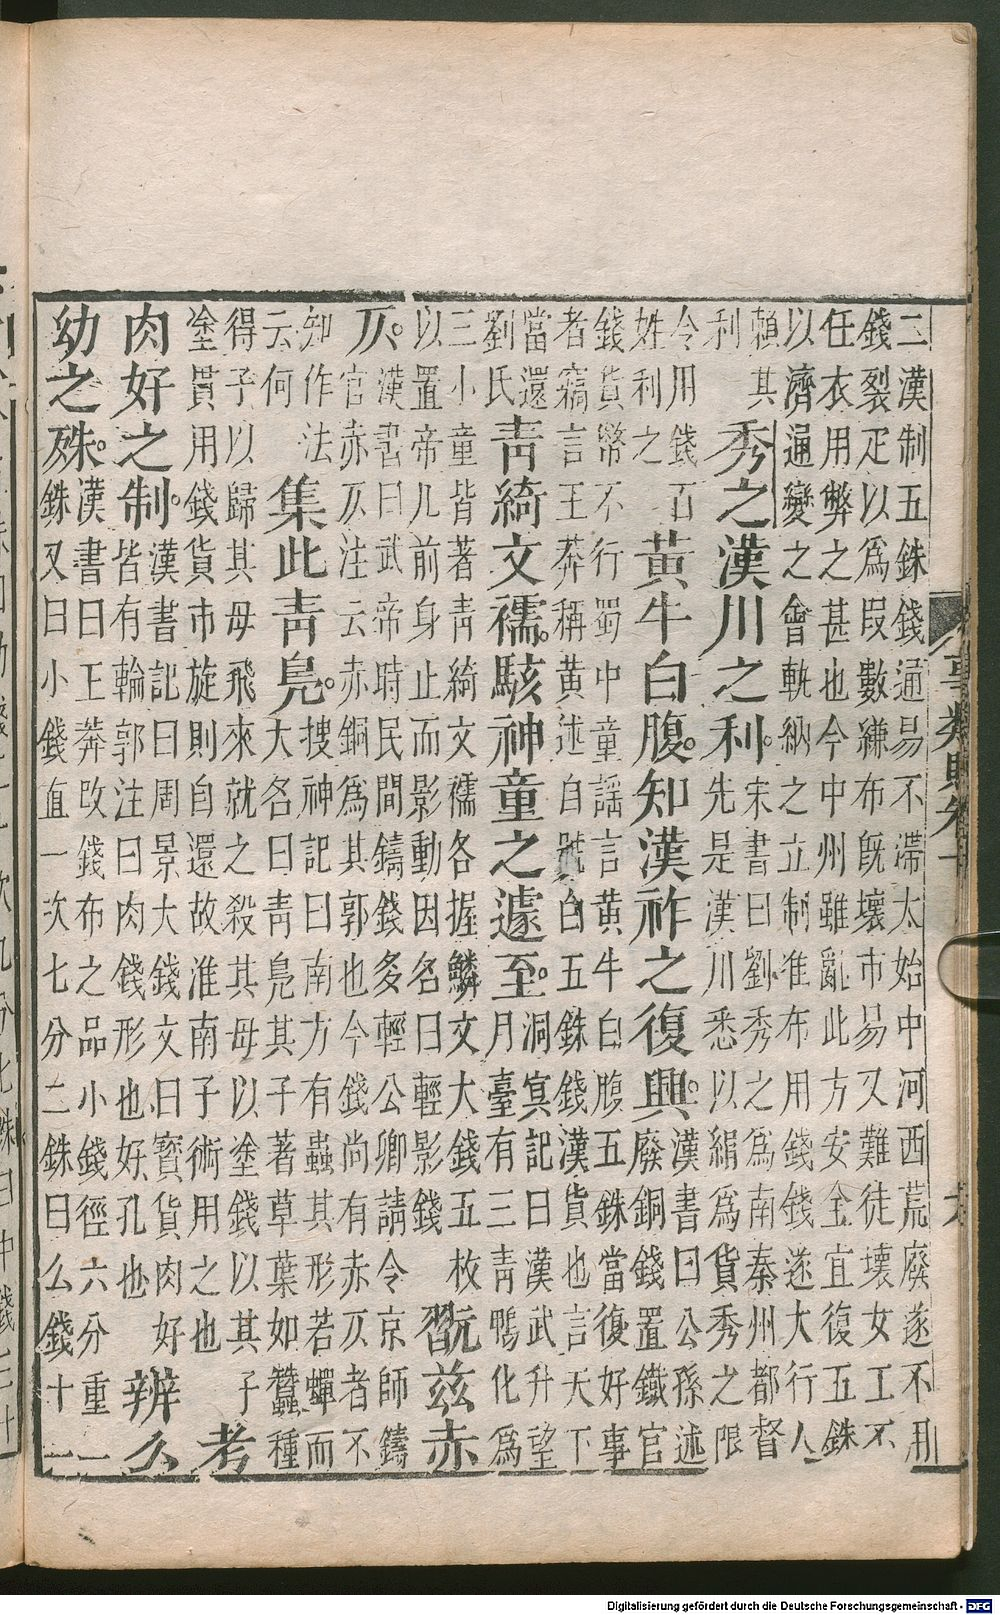 二漢制五銖錢通易不滯太始中河西荒廢遂不用
錢裂疋以爲叚數縑布既壞市易又難徒壞女工不
任衣用弊之甚也今中州雖亂此方安全宜復五銖
以濟通變之會軌納之立制准布用錢錢遂大行人
賴其
利
秀之漢川之利。
宋書曰劉秀之爲南秦州都督
先是漢川悉以絹爲貨秀之限
令用錢百
姓利之
黃牛白腹。知漢祚之復興。
漢書曰公孫述
廢銅錢置鐵官
錢貨幣不行蜀中童謡言黃牛白腹五銖當復好事
者竊言王莽稱黃述自號白五銖錢漢貨也言天下
當還
劉氏
青綺文襦。駭神童之遽至。
洞冥記曰漢武升望
月臺有三青鴨化爲
三小童皆著青綺文襦各握鱗文大錢五枚
以置帝几前身止而影動因名曰輕影錢
翫茲赤
仄。
漢書曰武帝時民間鑄錢多輕公卿請令京師鑄
官赤仄注云赤銅爲其郭也今錢尚有赤仄者不
知作法
云何
集此青鳬。
搜神記曰南方有蟲其形若蟬而
大名曰青鳬其子著草葉如蠶種
得子以歸其母飛來就之殺其母以塗錢以其子
塗貫用錢貨市旋則自還故淮南子術用之也
考
肉好之制。
漢書記曰周景大錢文曰寳貨肉好
皆有輪郭注曰肉錢形也好孔也
辨么
幼之殊。
漢書曰王莽改錢布之品小錢徑六分重一
銖又曰小錢直一次七分二銖曰么錢十一
事類賦卷十
Digitalisierung gefördert durch die Deutsche Forschungsgemeinschaft - DFG